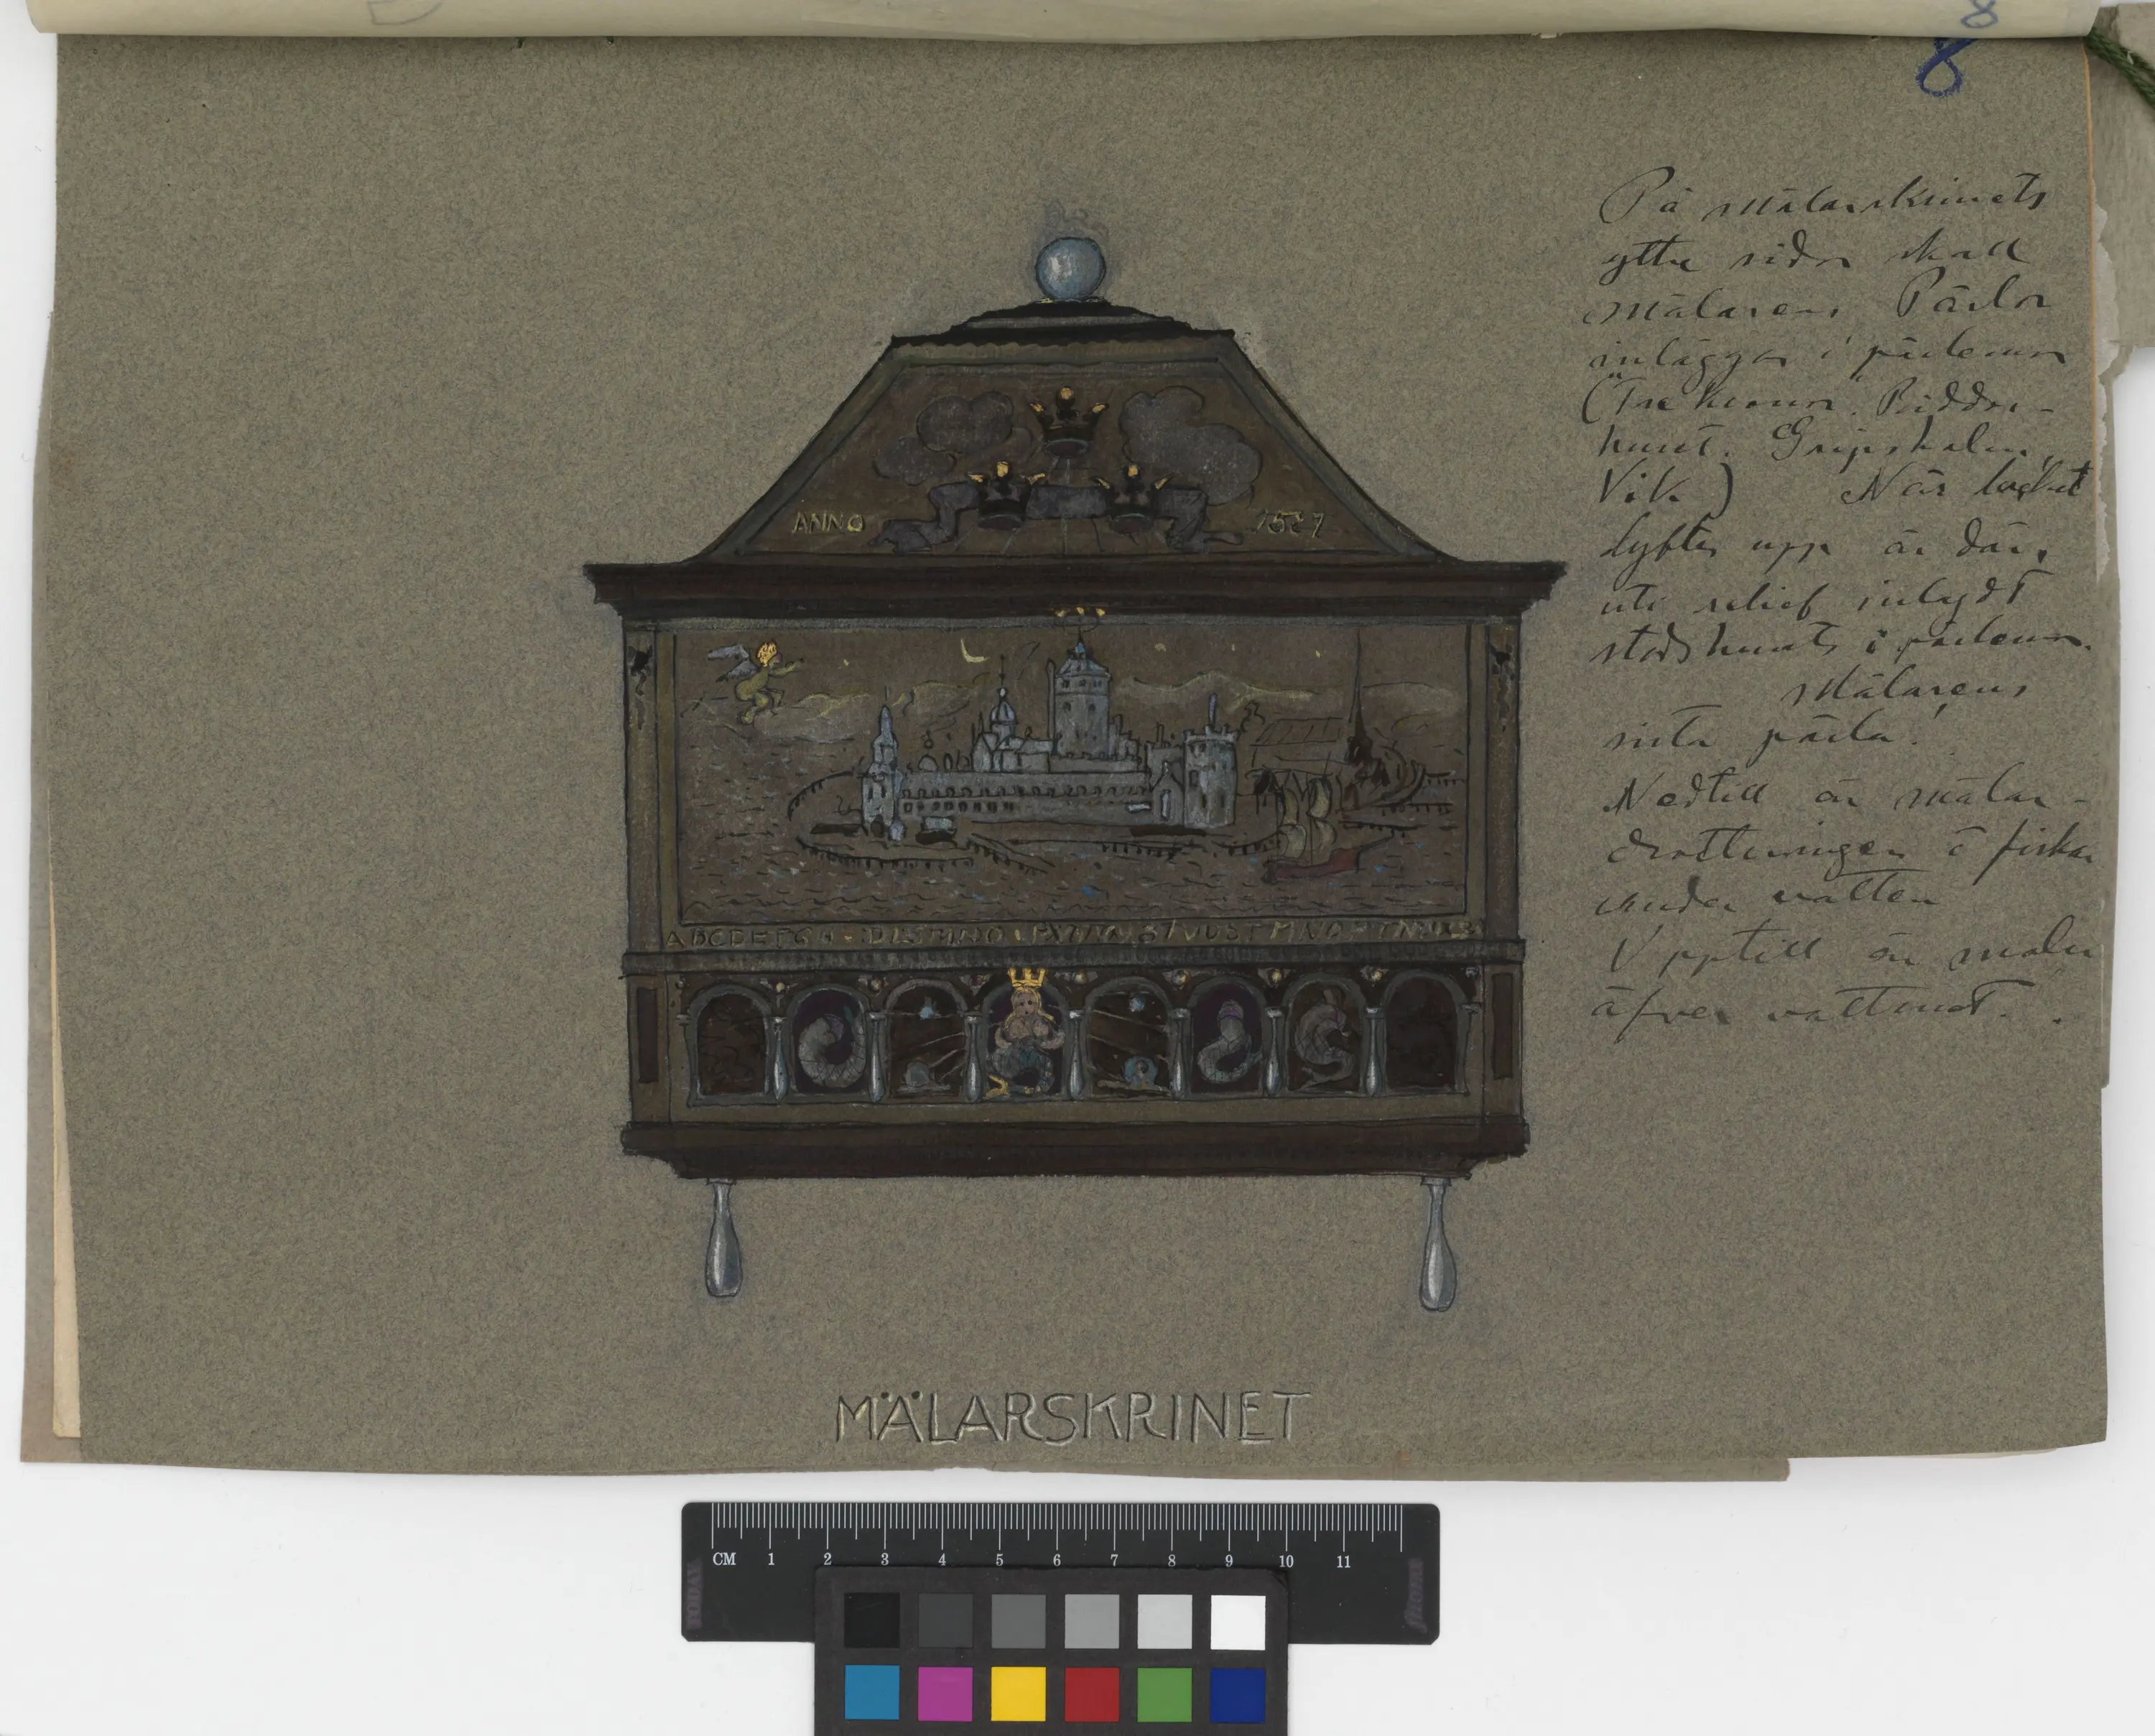 8
8
På Mälarskrinets
yttre sidor skall
Mälarens Pärlor
inläggas i pärlemor
("Tre kronor" Riddar-
huset. Gripsholm,
Vik) När locket
lyftes upp är där,
uti relief inlagdt
stadshuset i pärlemor.
Mälarens
sista pärla!
Nedtill är mälar-
drottningen å fiskar
under vatten
Upptill är
äfver vattnet.
ANNO 1527
ABCDEFGH
MÄLARSKRINET
CM 1 2 3 4 5 6 7 8 9 10 11